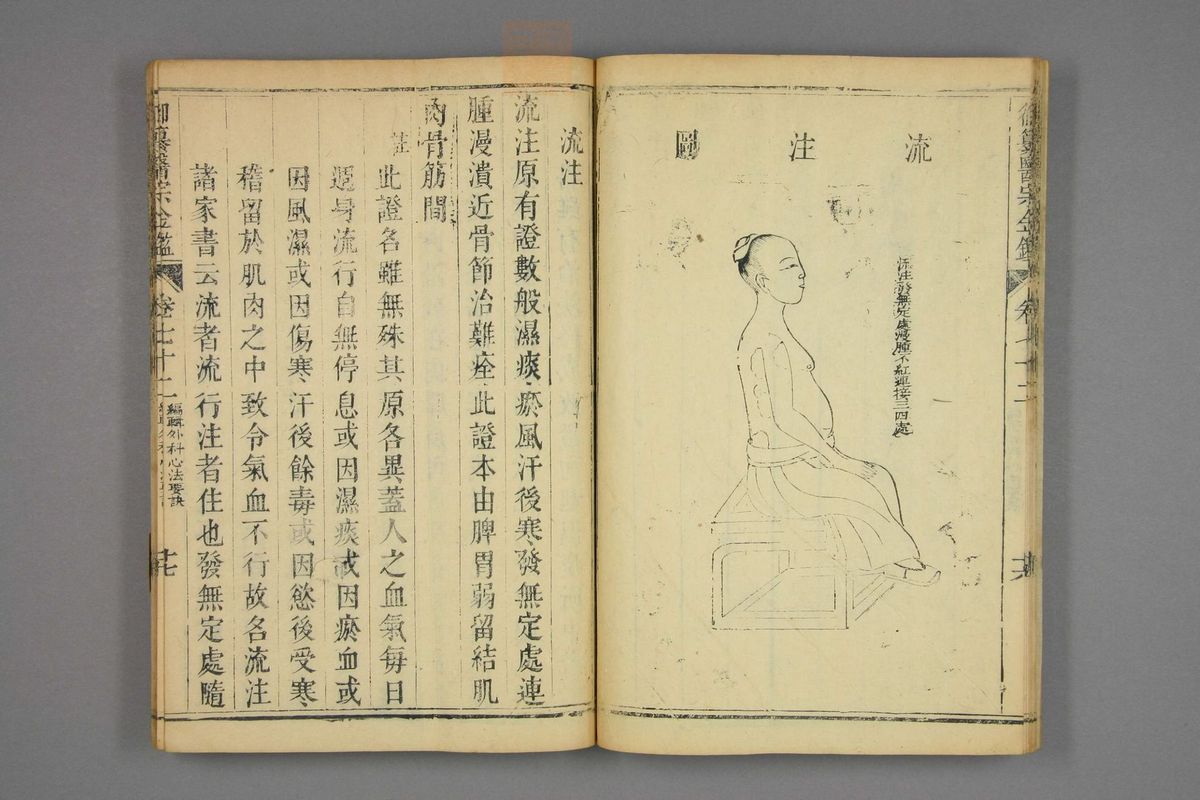 流注圖
流注發無定處漫腫不紅連接三四處
御纂醫宗金鑑
卷七十二
流注
流注原有證數般濕痰瘀風汗後寒發無定處連
腫漫潰近骨節治難痊此證本由脾胃弱留結肌
肉骨筋間
註
此證名雖無殊其原各異蓋人之血氣每日
週身流行自無停息或因濕痰或因瘀血或
因風濕或因傷寒汗後餘毒或因慾後受寒
稽留於肌肉之中致令氣血不行故名流注
諸家書云流者流行注者住也發無定處隨
御纂醫宗金鑑
卷七十二
編輯外科心法要訣